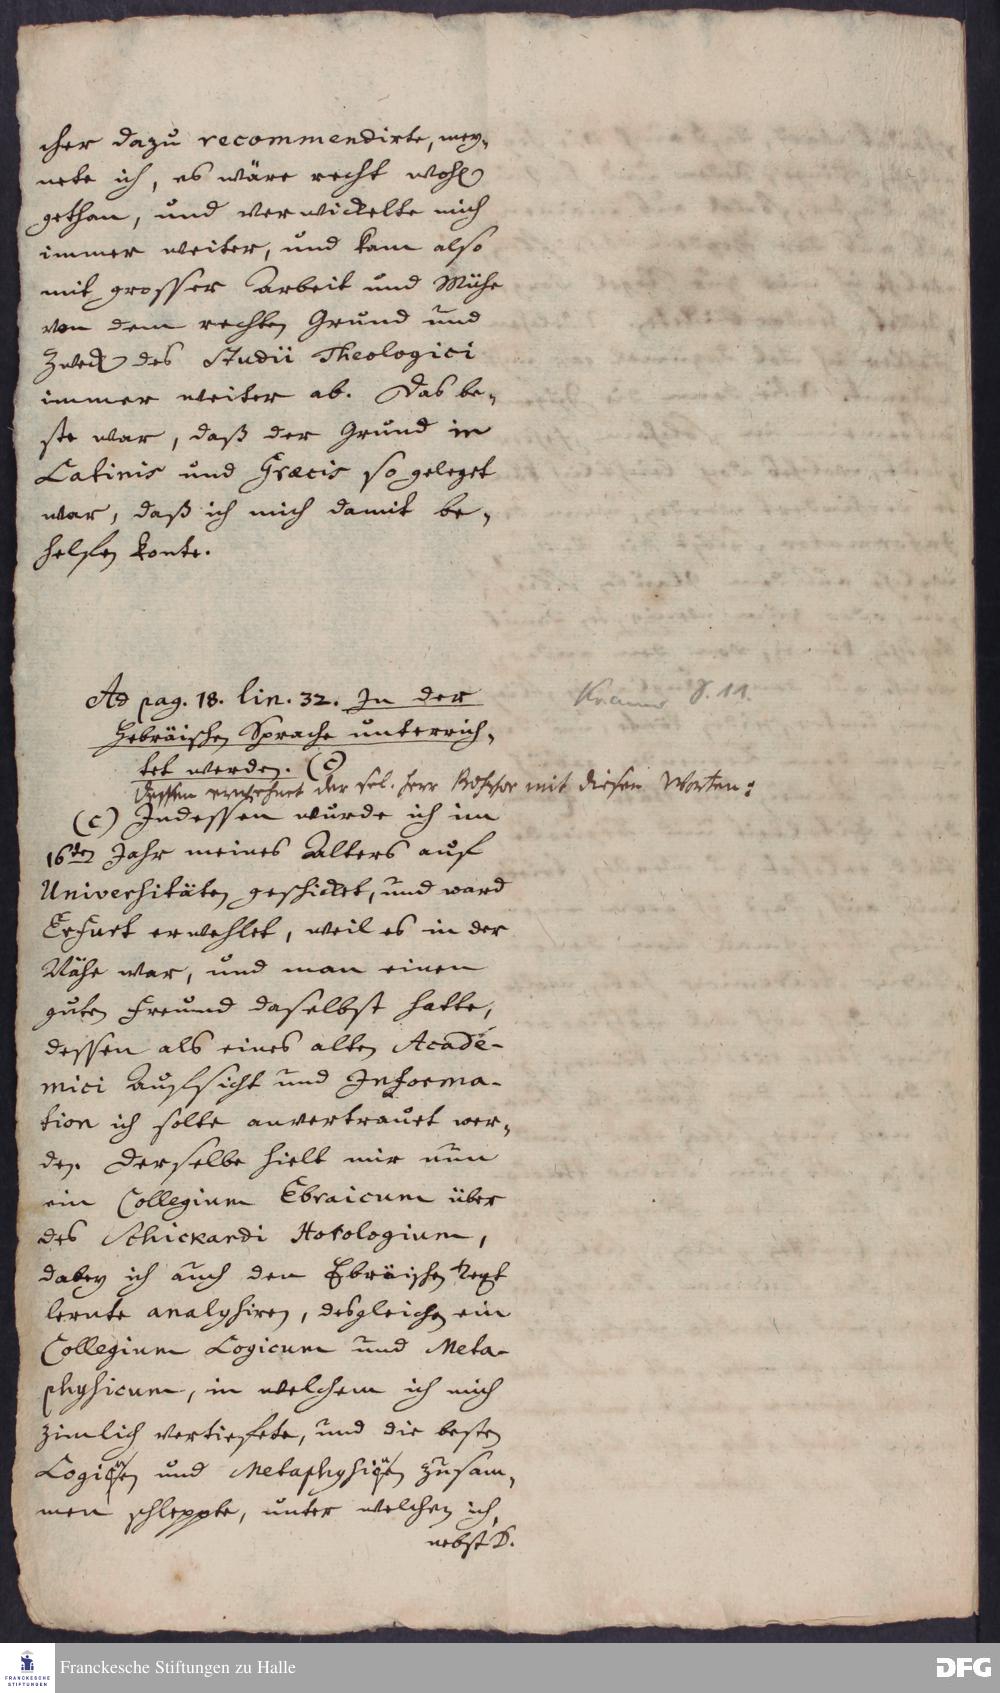 cher dazu recommendirte, mey-
nete ich, es wäre recht wohl
gethan, und verwickelte mich
immer weiter, und kam also
mit grosser Arbeit und Mühe
von dem rechten Grund und
Zweck des Studii Theologici
immer weiter ab. Das be-
ste war, daß der Grund in
Latinis und Græcis so geleget
war, daß ich mich damit be-
helfen konte.
Ad pag. 18. lin. 32. In der
Kramer S. 11.
Hebräischen Sprache unterrich-
tet werden. (c)
Dessen erwehnet der sel. Herr Professor mit diesen Worten:
(c) Indessen wurde ich im
16ten Jahr meines Alters auf
Universitäten geschicket, und ward
Erfurt erwehlet, weil es in der
Nähe war, und man einen
guten Freund daselbst hatte,
dessen als eines alten Acade-
mici Aufsicht und Informa-
tion ich solte anvertrauet wer-
den. Derselbe hielt mir nun
ein Collegium Ebraicum über
des Schickardi Horologium,
dabey ich auch den Ebräischen Text
lernte analysiren, desgleichen ein
Collegium Logicum und Meta-
physicum, in welchem ich mich
zimlich vertiefete, und die besten
und zusam-
men schleppte, unter welchen ich,
nebst D.
Franckesche Stiftungen zu Halle
FRANCKESCHE
STIFTUNGEN
DFG